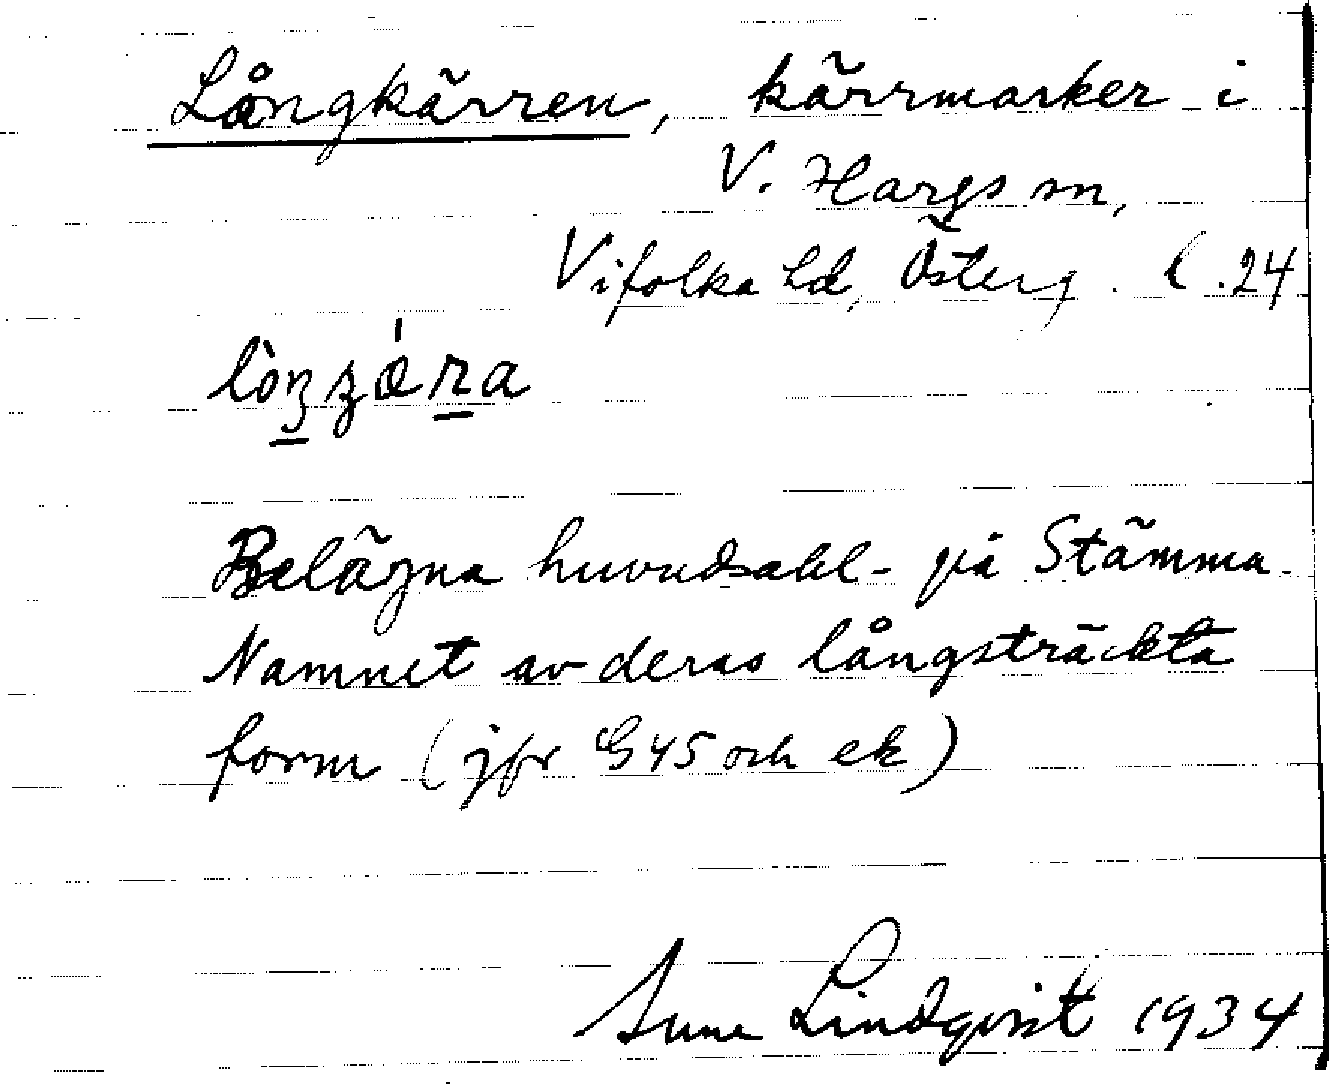 Långkärren, kärrmarker i
V. Hargs sn,
Vifolka hd, Österg. l.24
Belägna huvudsakl. på Stämma.
Namnet av deras långsträckta
form (jfr G45 och ek)
Sune Lindqvist 1934